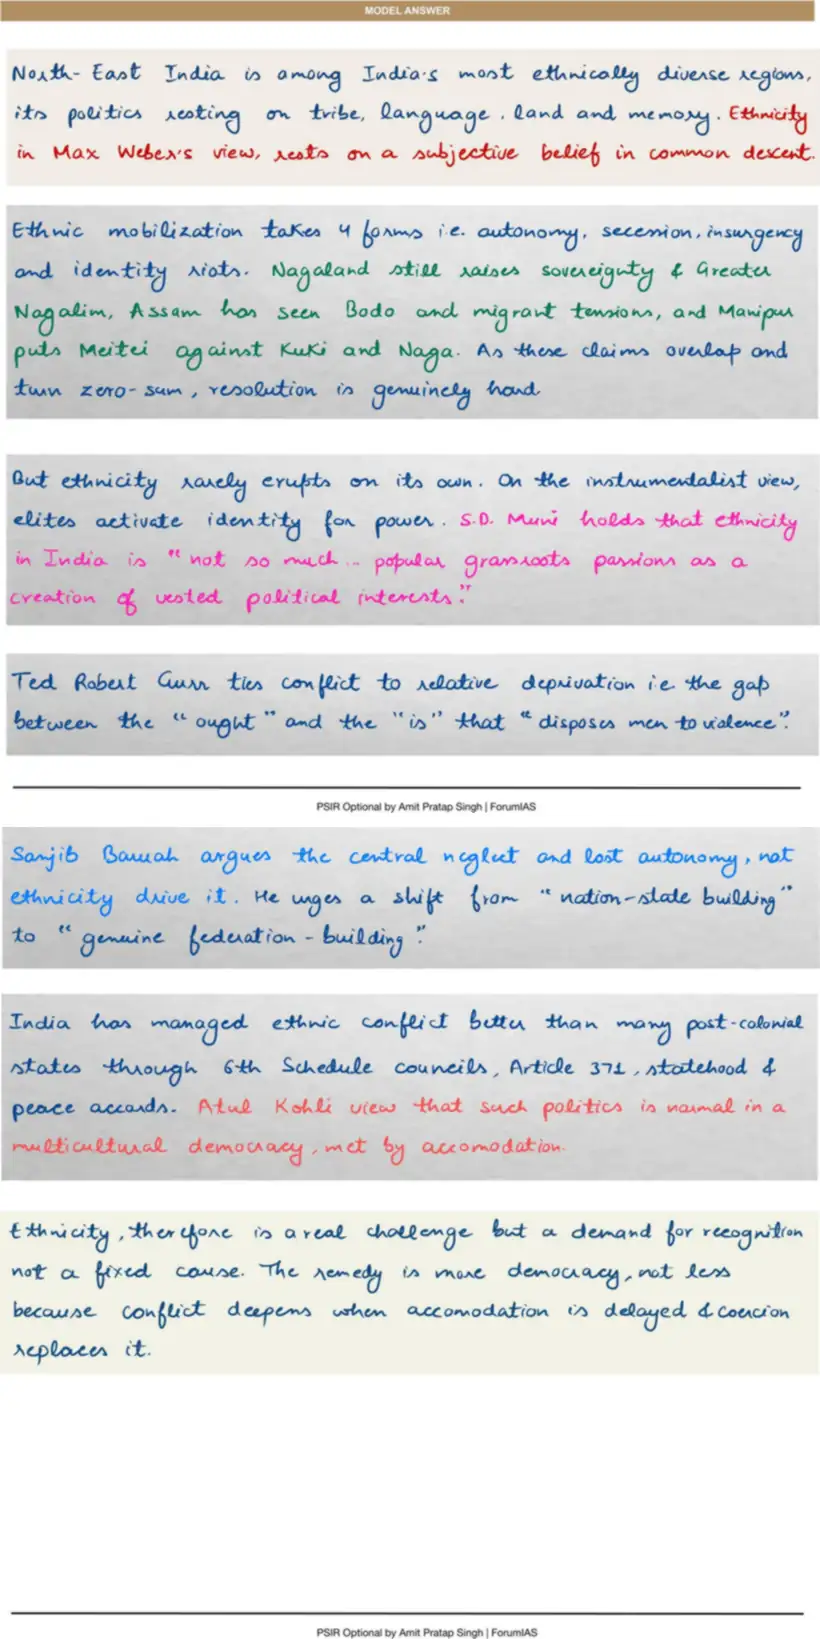 MODEL ANSWER
North-East India is among India's most ethnically diverse regions,
its politics resting on tribe, language, land and memory. Ethnicity
in Max Weber's view, rests on a subjective belief in common descent.
Ethnic mobilization takes 4 forms i.e. autonomy, secession, insurgency
and identity riots. Nagaland still raises sovereignty & Greater
Nagalim, Assam has seen Bodo and migrant tensions, and Manipur
puts Meitei against Kuki and Naga. As these claims overlap and
turn zero-sum, resolution is genuinely hard
But ethnicity rarely erupts on its own. On the instrumentalist view,
elites activate identity for power. S.D. Muni holds that ethnicity
in India is "not so much... popular grassroots passions as a
creation of vested political interests."
Ted Robert Gurr ties conflict to relative deprivation i.e. the gap
between the "ought" and the "is" that "disposes men to violence".
PSIR Optional by Amit Pratap Singh | ForumIAS
Sanjib Baruah argues the central neglect and lost autonomy, not
ethnicity drive it. He urges a shift from "nation-state building"
to "genuine federation-building".
India has managed ethnic conflict better than many post-colonial
states through 6th Schedule councils, Article 371, statehood &
peace accords. Atul Kohli view that such politics is normal in a
multicultural democracy, met by accomodation.
Ethnicity, therefore is a real challenge but a demand for recognition
not a fixed cause. The remedy is more democracy, not less
because conflict deepens when accomodation is delayed & coercion
replaces it.
PSIR Optional by Amit Pratap Singh | ForumIAS